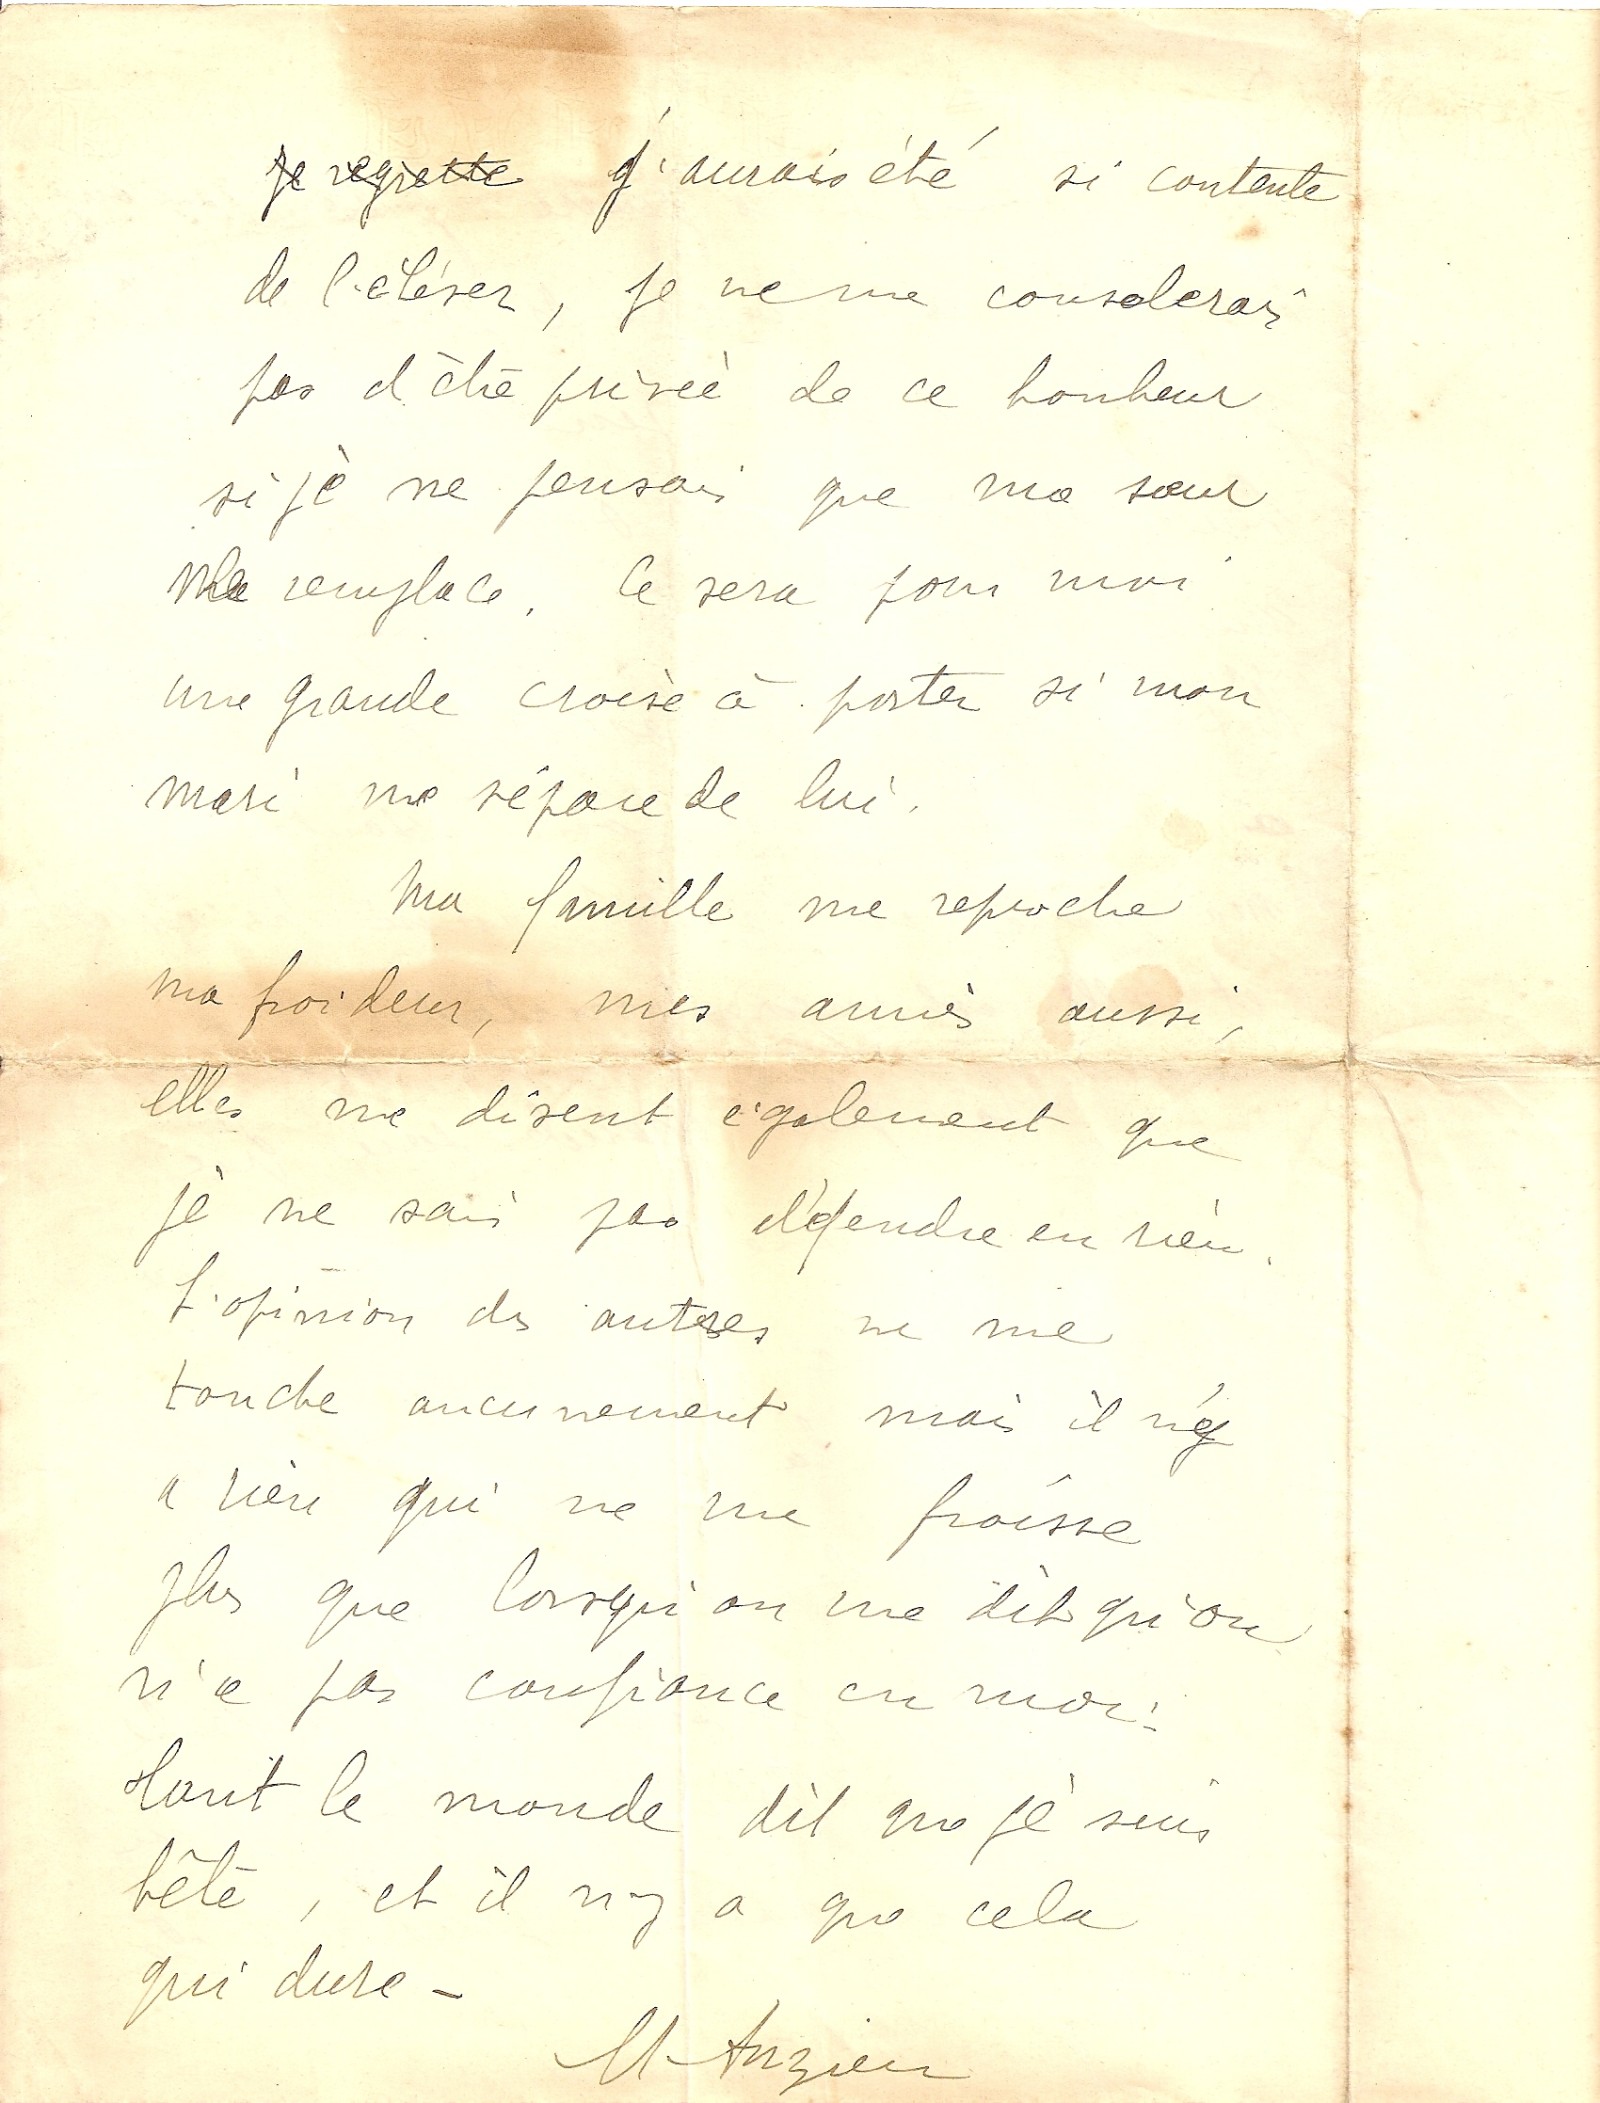 je regrette j'aurais été si contente
de l'éléver, je ne me consolerais
pas d'être privée de ce bonheur
si je ne pensais que ma sœur
me remplace. Ce sera pour moi
une grande croise à porter si mon
mari me sépare de lui.
Ma famille me reproche
ma froideur, mes amies aussi,
elles me disent également que
je ne sais pas défendre en rien.
L'opinion des autres ne me
touche aucunement mais il n'y
a rien qui ne me froisse
plus que lorsqu'on me dit qu'on
n'a pas confiance en moi:
tout le monde dit que je suis
bête, et il n'y a que cela
qui dure -
M Anzieu